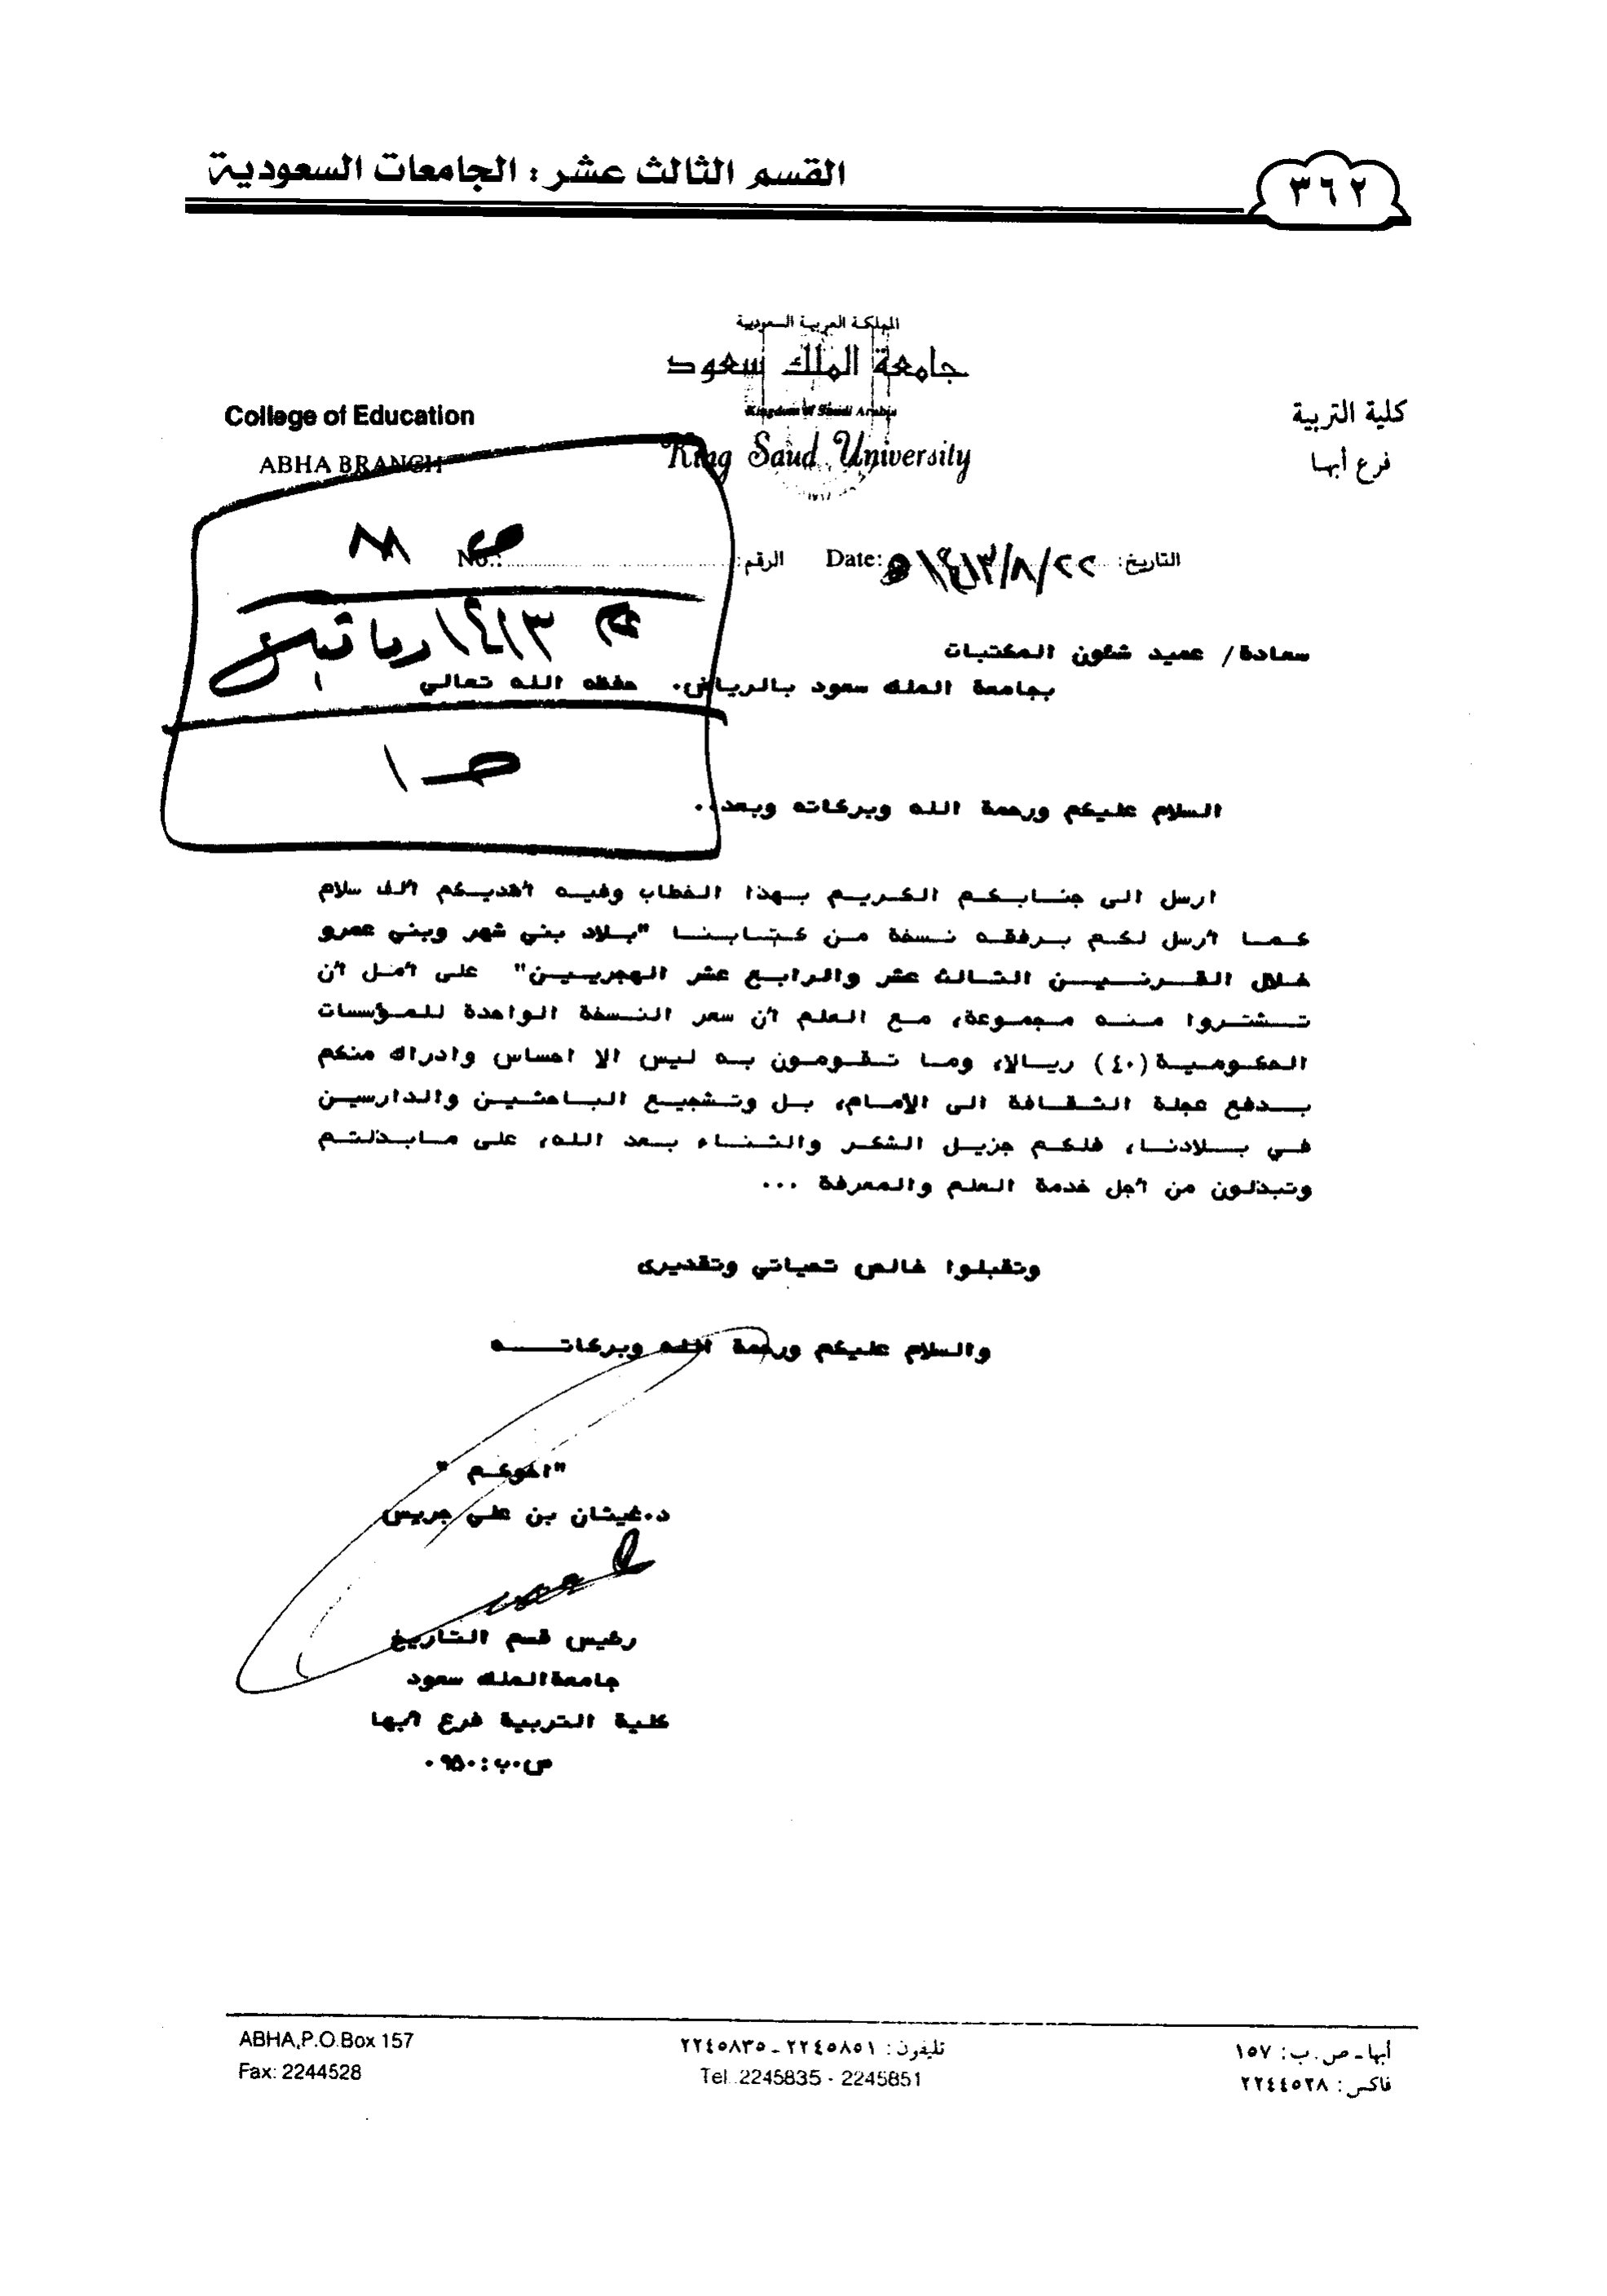 القسم الثالث عشر : الجامعات السعودية
٣٦٢
المملكة العربية السعودية
جامعة الملك سعود
Kingdom of Saudi Arabia
King Saud University
كلية التربية
فرع أبها
College of Education
ABHA BRANCH
التاريخ: ٢٢/٨/١٤١٣هـ Date:
الرقم: No.:
١٤١٣
ص ١
سعادة/ عميد شئون المكتبات
بجامعة الملك سعود بالرياض. حفظه الله تعالي
السلام عليكم ورحمة الله وبركاته وبعد..
ارسل الى جنابكم الكريم بهذا الخطاب وفيه أهديكم ألف سلام
كما أرسل لكم برفقه نسخة من كتابنا "بلاد بني شهر وبني عمرو
خلال القرنين الثالث عشر والرابع عشر الهجريين" على أمل أن
تشتروا منه مجموعة، مع العلم أن سعر النسخة الواحدة للمؤسسات
الحكومية (٤٠) ريالا، وما تقومون به ليس الا احساس وادراك منكم
بدفع عجلة الثقافة الى الأمام، بل وتشجيع الباحثين والدارسين
في بلادنا، فلكم جزيل الشكر والثناء بعد الله، على مابذلتم
وتبذلون من أجل خدمة العلم والمعرفة ...
وتقبلوا خالص تحياتي وتقديرى
والسلام عليكم ورحمة الله وبركاته
"اخوكم "
د.غيثان بن علي جريس
رئيس قسم التاريخ
جامعة الملك سعود
كلية التربية فرع أبها
ص.ب: ٩٥٠
أبها ـ ص.ب: ١٥٧
فاكس: ٢٢٤٤٥٢٨
تليفون: ٢٢٤٥٨٥١ ـ ٢٢٤٥٨٣٥
Tel. 2245835 - 2245851
ABHA,P.O.Box 157
Fax: 2244528